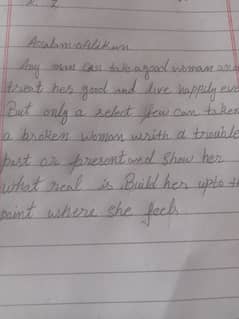 Asalam o Alikum
Any man can take a good woman an
treat her good and live happily eve
But only a select few can take
a broken woman writh a trouble
past or present and show her
what real is. Build her upto th
point where she feels